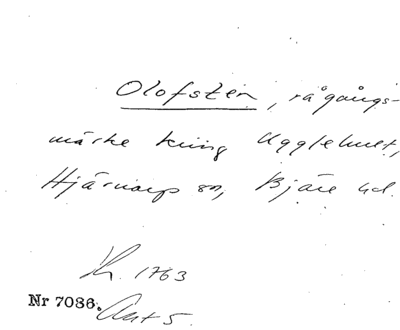 Olofsten, rågångs-
märke kring Ugglehult,
Hjärnarps sn, Bjäre hd.
Kr. 1763
Nr 7086. Akt 5.